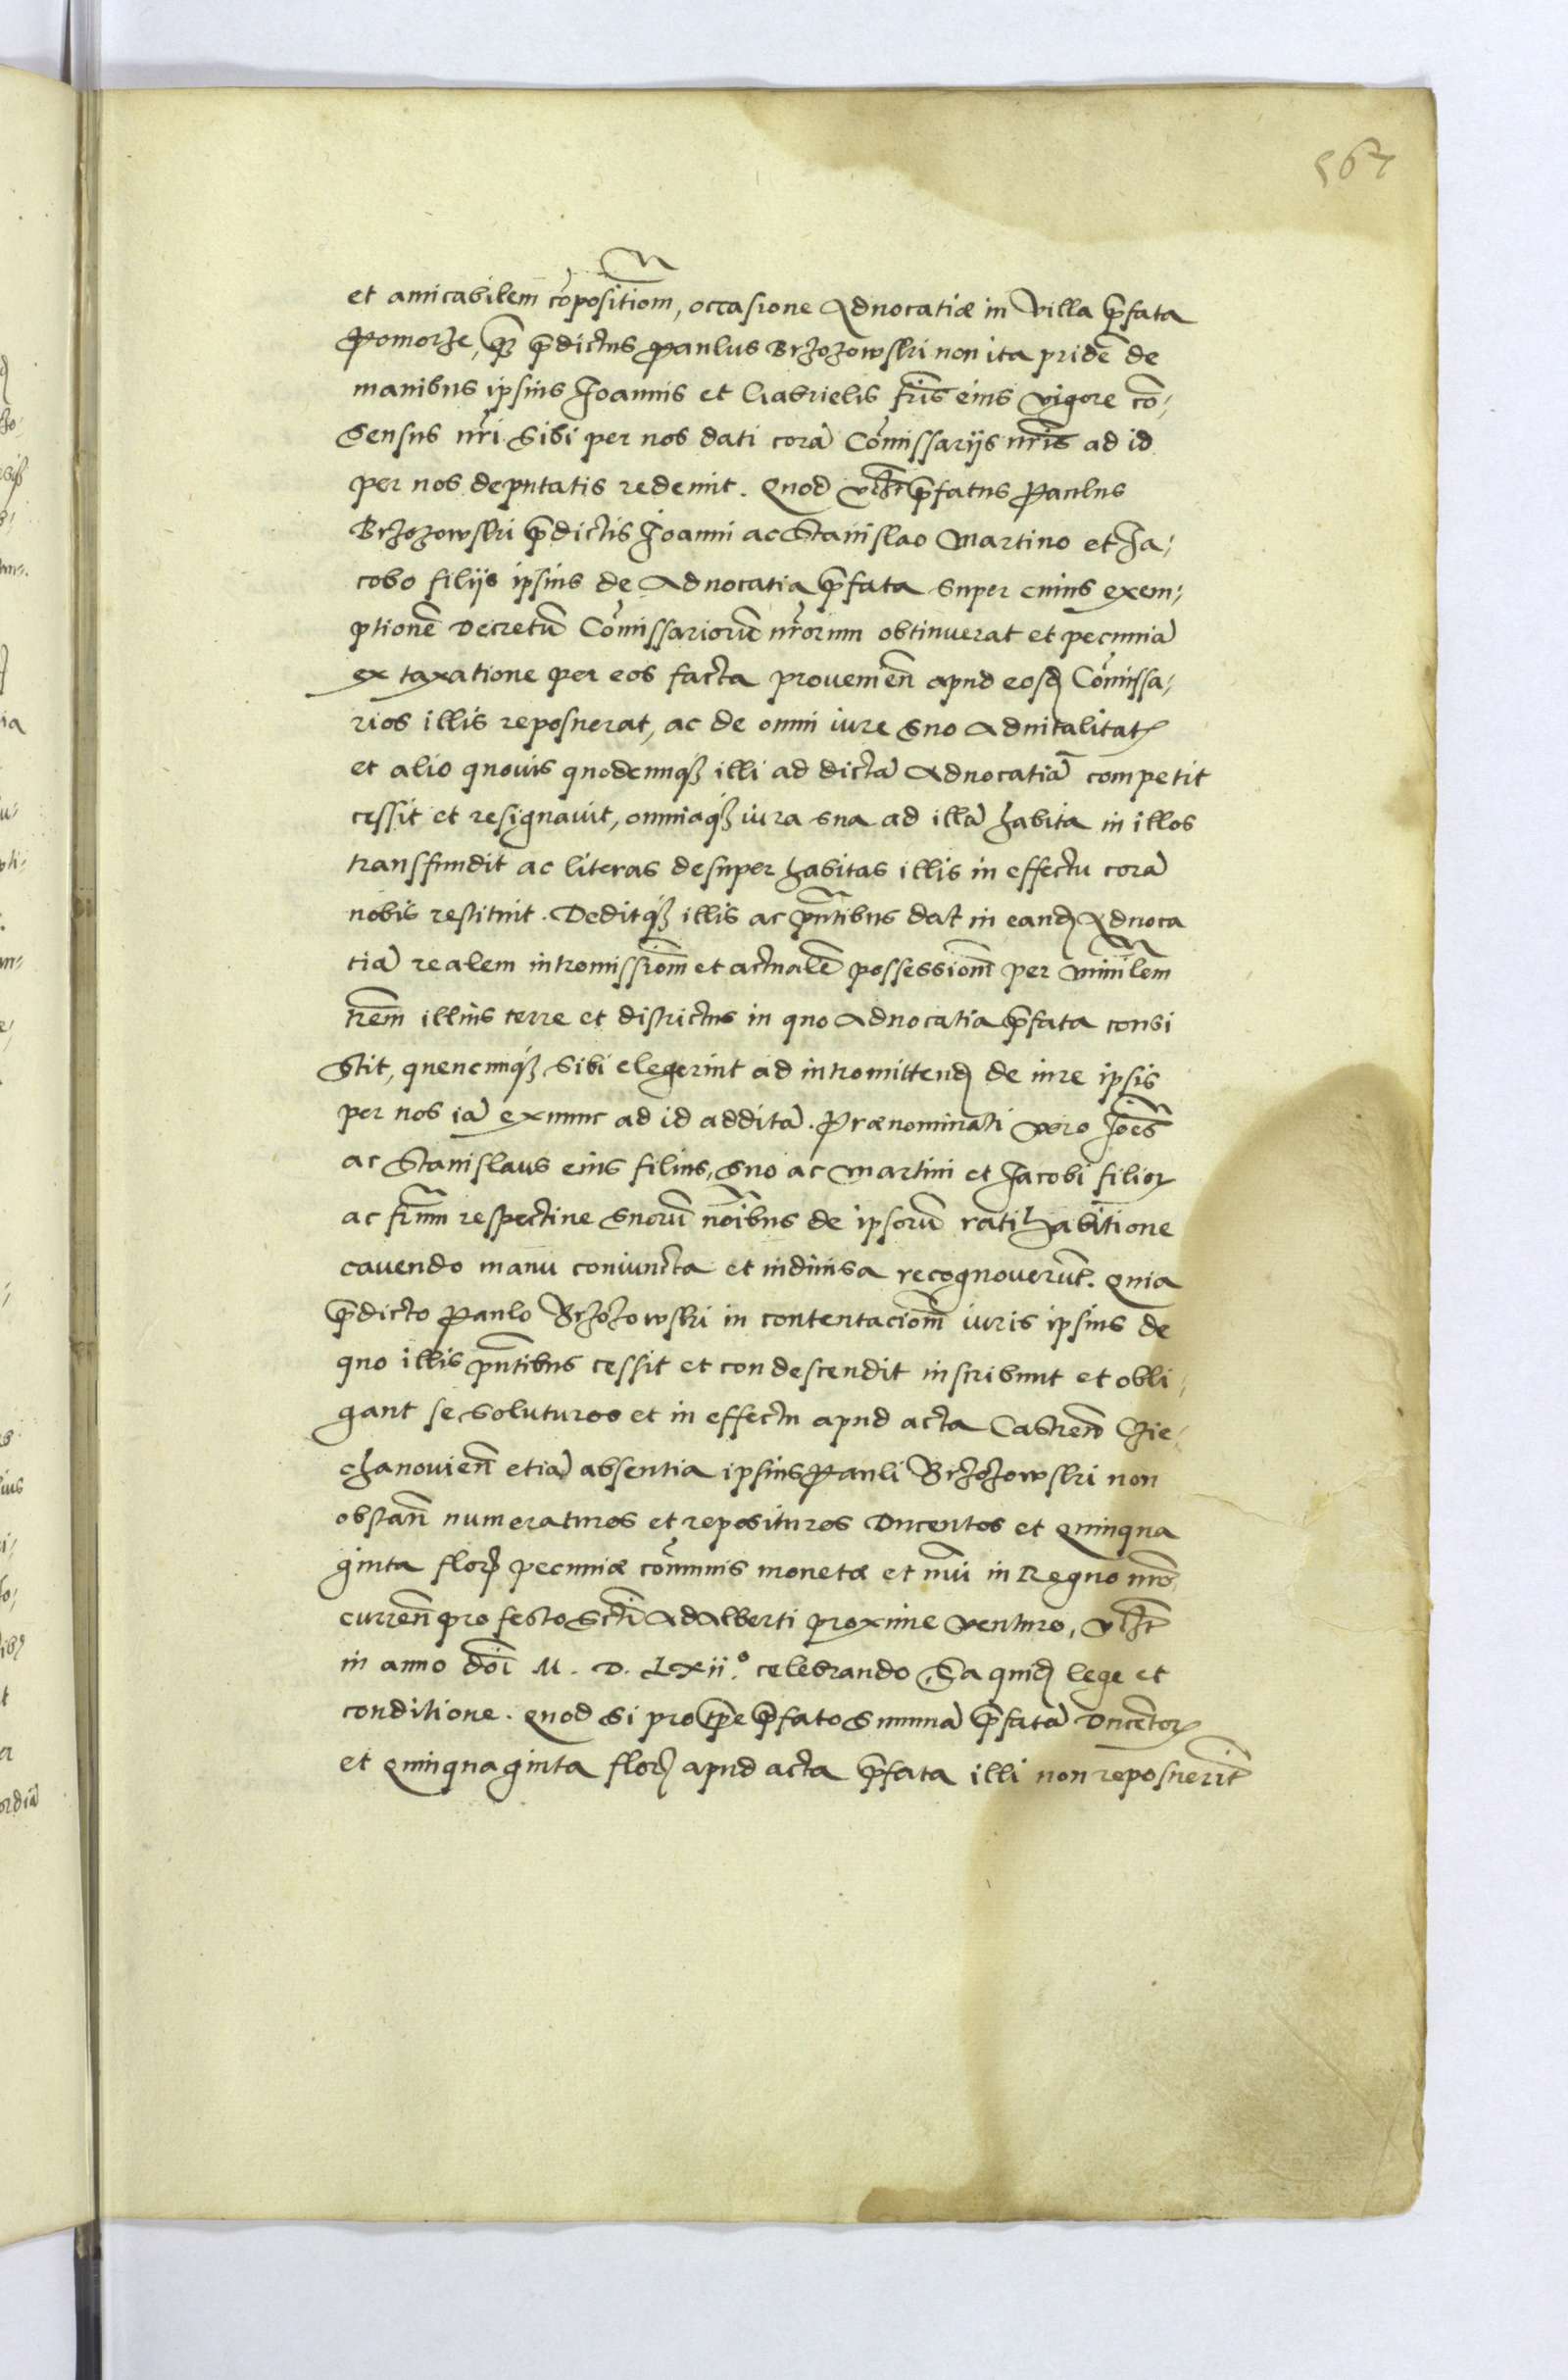 567
et amicabilem cõpositiom̃, occasione Aduocatiæ in villa p̃fata
Pomorze, quã p̃dictus Paulus Brzozowski non ita pridẽ de
manibus ipsius Joannis et Gabrielis fr̃is eius vigore cõ-
sensus nr̃i sibi per nos dati corã Cõmissarijs nr̃is ad id
per nos deputatis redemit. Quod vidz̃ p̃fatus Paulus
Brzozowski p̃dictis Joanni ac Stanislao Martino et Ja-
cobo filijs ipsius de Aduocatia p̃fata super cuius exem-
ptionẽ Decretũ Cõmissariorũ nr̃orum obtinuerat et pecuniã
ex taxatione per eos facta prouenien̄ apud eosd̃ Cõmissa-
rios illis reposuerat, ac de omni iure suo Aduitalitatꝭ
et alio quouis quodcunqꝫ illi ad dictã Aduocatiã competit
cessit et resignauit, omniaqꝫ iura sua ad illã habita in illos
transfundit ac literas desuper habitas illis in effectu corã
nobis restituit. Deditqꝫ illis ac pñtibus dat in eand̃ Aduoca
tiã realem intromissiom̃ et actualẽ possessionẽ per ministeri
lem̃ illius terre et districtus in quo Aduocatia p̃fata consi
stit, quencunqꝫ sibi elegerint ad intromittend̃ de iure ipsis
per nos iã exnunc ad id additã. Prænominati vero Joẽs
ac Stanislaus eius filius, suo ac Martini et Jacobi filioꝝ
ac fr̃um respectiue suorũ nõibus de ipsorũ ratihabitione
cauendo manu coniuncta et indiuisa recognouerũt. Quia
p̃dicto Paulo Brzozowski in contentaciom̃ iuris ipsius de
quo illis pñtibus cessit et condescendit inscribunt et obli-
gant se soluturos et in effectu apud acta Castren̄ Cie-
chanouien̄ etiã absentia ipsius Pauli Brzozowski non
obstan̄ numeraturos et reposituros Ducentos et Quinqua
ginta florꝭ pecuniæ cõmunis monetæ et nũi in Regno nr̃o
curren̄ pro festo Scti Adalberti proxime venturo, vidz̃
in anno dñi M. D. LXii.º celebrando, Ea quid̃ lege et
conditione. Quod si pro tp̃e p̃fato summã p̃fatã Ducentoꝝ
et Quinquaginta florꝭ apud acta p̃fata illi non reposuerĩt